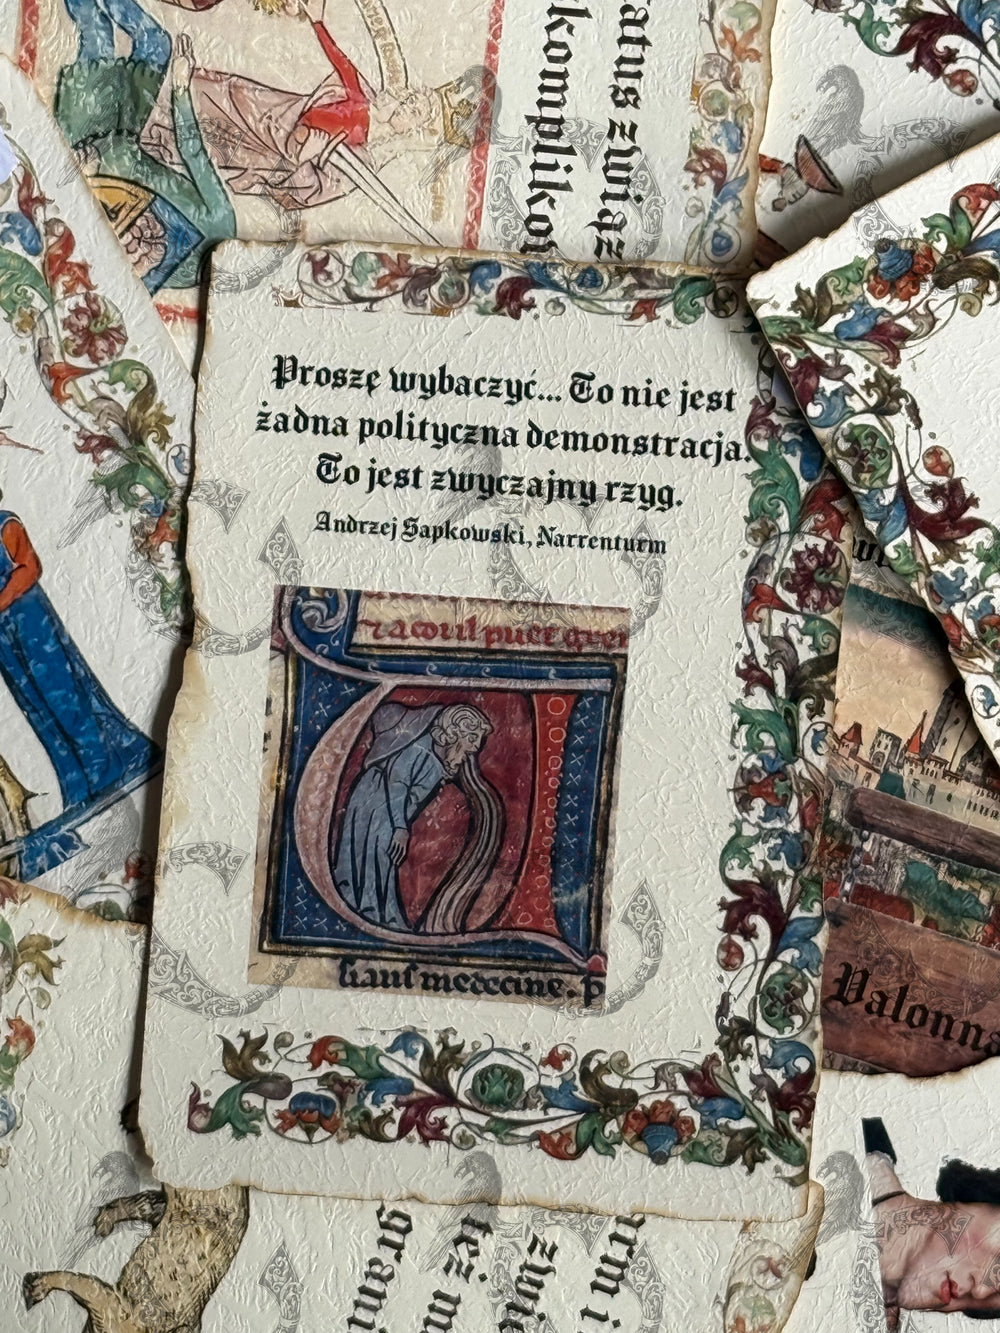 atus związ
komplikow
Proszę wybaczyć... To nie jest
żadna polityczna demonstracja.
To jest zwyczajny rzyg.
Andrzej Sapkowski, Narrenturm
sianf medecine. p
Valonna
grani
też m
zwi
arm i